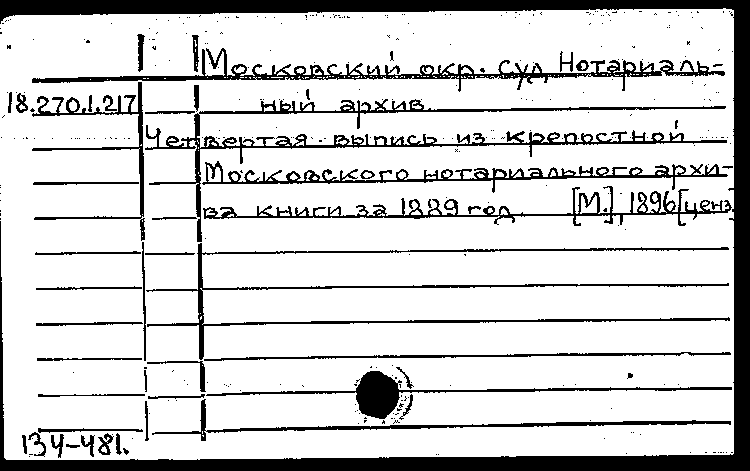 Московский окр. суд, Нотариаль-
18.270.1.217 ный архив.
Четвертая выпись из крепостной
Московского нотариального архи-
ва книги за 1889 год. [М.], 1896 [ценз.
134-481.